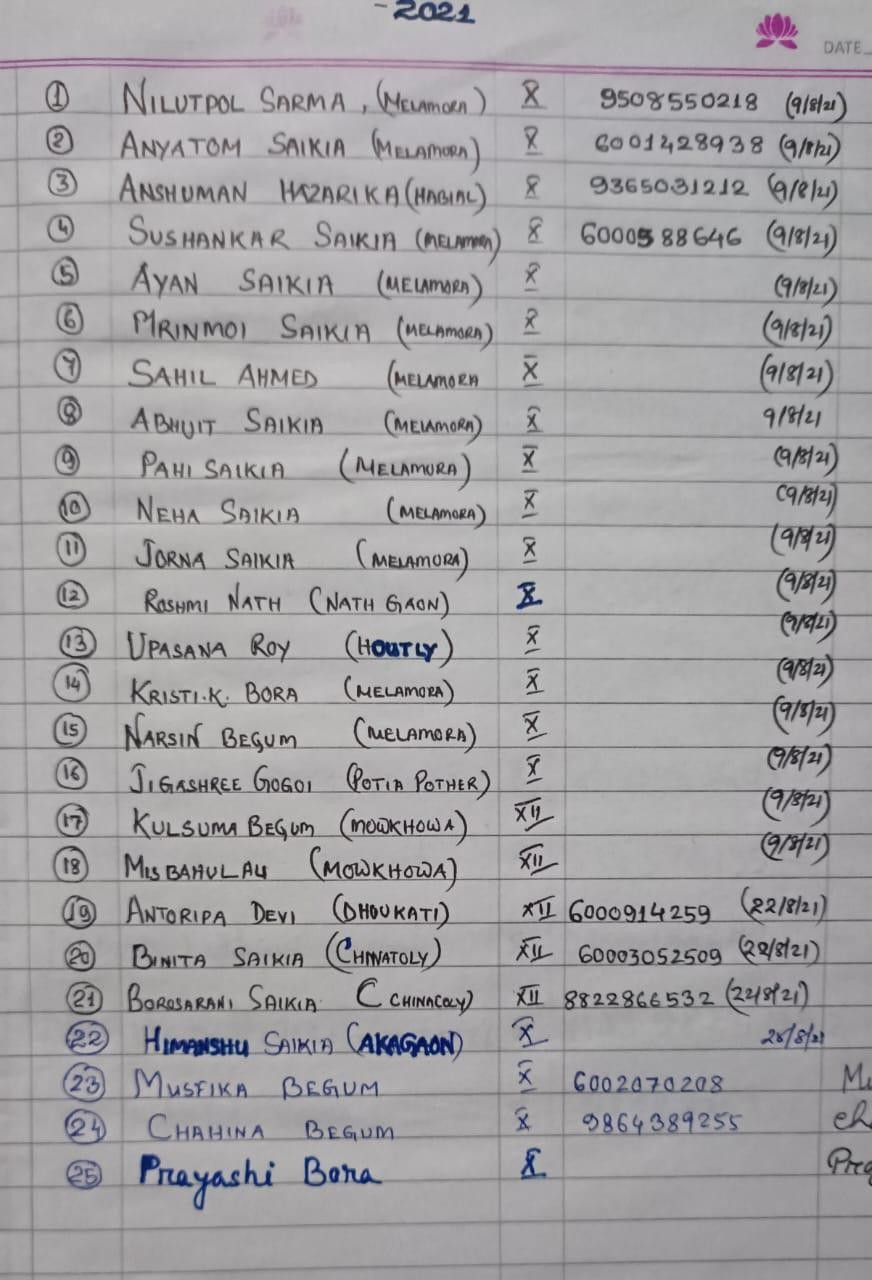 -2021
DATE
1 NILUTPOL SARMA, (MELAMORA) X 9508550218 (9/8/21)
2 ANYATOM SAIKIA (MELAMORA) X 6001428938 (9/8/21)
3 ANSHUMAN HAZARIKA (HABIAL) X 9365031212 (9/8/21)
4 SUSHANKAR SAIKIA (MELAMORA) X 6000588646 (9/8/21)
5 AYAN SAIKIA (MELAMORA) X (9/8/21)
6 MRINMOI SAIKIA (MELAMORA) X (9/8/21)
7 SAHIL AHMED (MELAMORA X (9/8/21)
8 ABHIJIT SAIKIA (MELAMORA) X 9/8/21
9 PAHI SAIKIA (MELAMORA) X (9/8/21)
10 NEHA SAIKIA (MELAMORA) X (9/8/21)
11 JORNA SAIKIA (MELAMORA) X (9/8/21)
12 ROSHMI NATH (NATH GAON) X (9/8/21)
13 UPASANA ROY (HOUTLY) X (9/8/21)
14 KRISTI.K. BORA (MELAMORA) X (9/8/21)
15 NARSIN BEGUM (MELAMORA) X (9/8/21)
16 JIGASHREE GOGOI (POTIA POTHER) X (9/8/21)
17 KULSUMA BEGUM (MOWKHOWA) XII (9/8/21)
18 MISBAHUL ALI (MOWKHOWA) XII (9/8/21)
19 ANTORIPA DEVI (DHOUKATI) XII 6000914259 (22/8/21)
20 BINITA SAIKIA (CHINATOLY) XII 60003052509 (22/8/21)
21 BOROSARANI SAIKIA (CHINACOLY) XII 8822866532 (22/8/21)
22 HIMANSHU SAIKIA (AKAGAON) X 28/8/21
23 MUSFIKA BEGUM X 6002070208
24 CHAHINA BEGUM X 9864389255
25 Prayashi Bora X